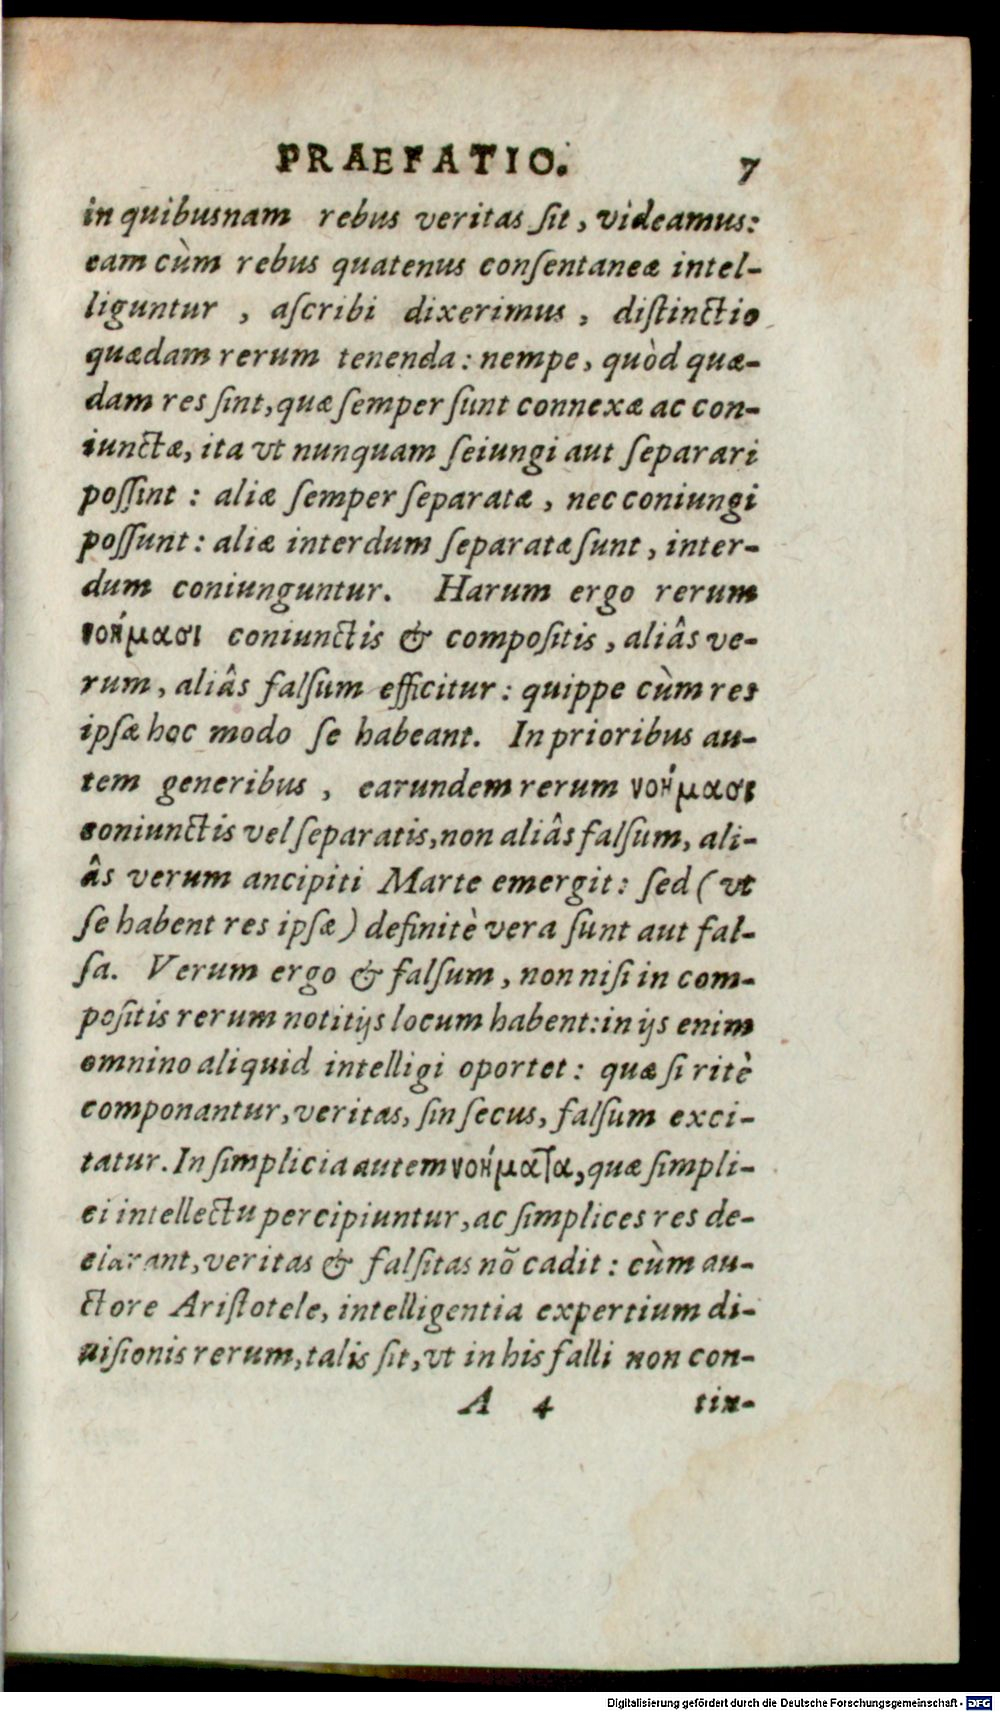 PRAEFATIO. 7
in quibusnam rebus veritas ſit, videamus:
eam cùm rebus quatenus conſentaneæ intel-
liguntur , aſcribi dixerimus , diſtinctio
quædam rerum tenenda: nempe, quòd quæ-
dam res ſint, quæ ſemper ſunt connexæ ac con-
iunctæ, ita vt nunquam ſeiungi aut ſeparari
poſſint : aliæ ſemper ſeparatæ , nec coniungi
poſſunt: aliæ interdum ſeparatæ ſunt, inter-
dum coniunguntur. Harum ergo rerum
νοήμασι coniunctis & compoſitis, aliâs ve-
rum, aliâs falſum efficitur: quippe cùm res
ipſæ hoc modo ſe habeant. In prioribus au-
tem generibus , earundem rerum νοήμασι
coniunctis vel ſeparatis, non aliâs falſum, ali-
âs verum ancipiti Marte emergit: ſed (vt
ſe habent res ipſæ) definitè vera ſunt aut fal-
ſa. Verum ergo & falſum, non niſi in com-
poſitis rerum notitijs locum habent: in ijs enim
omnino aliquid intelligi oportet: quæ ſi ritè
componantur, veritas, ſin ſecus, falſum exci-
tatur. In ſimplicia autem νοήματα, quæ ſimpli-
ci intellectu percipiuntur, ac ſimplices res de-
clarant, veritas & falſitas nõ cadit: cùm au-
ctore Ariſtotele, intelligentia expertium di-
uiſionis rerum, talis ſit, vt in his falli non con-
A 4 tin-
Digitalisierung gefördert durch die Deutsche Forschungsgemeinschaft - DFG